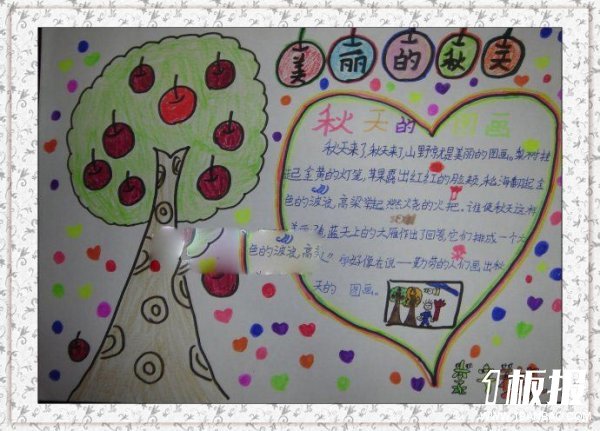 美丽的秋天
秋天的 图画
秋天来了,秋天来了,山野就是美丽的图画。梨树挂
起金黄的灯笼,苹果露出红红的脸颊,稻海翻起金
色的波浪,高粱举起燃烧的火把。谁使秋天这样
蓝天上的大雁作出了回答,它们排成一个大
色的波浪,高 好像在说——勤劳的人们画出秋
天的 图画。
板报